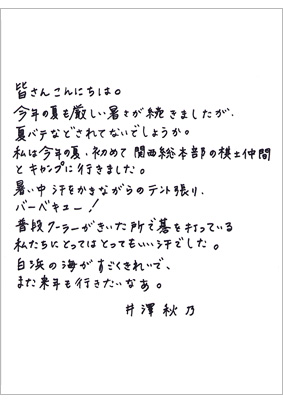 皆さんこんにちは。
今年の夏も厳しい暑さが続きましたが、
夏バテなどされてないでしょうか。
私は今年の夏、初めて関西総本部の棋士仲間
とキャンプに行きました。
暑い中汗をかきながらのテント張り、
バーベキュー!
普段クーラーがきいた所で碁を打っている
私たちにとってはとってもいい汗でした。
白浜の海がすごくきれいで、
また来年も行きたいなあ。
井澤秋乃